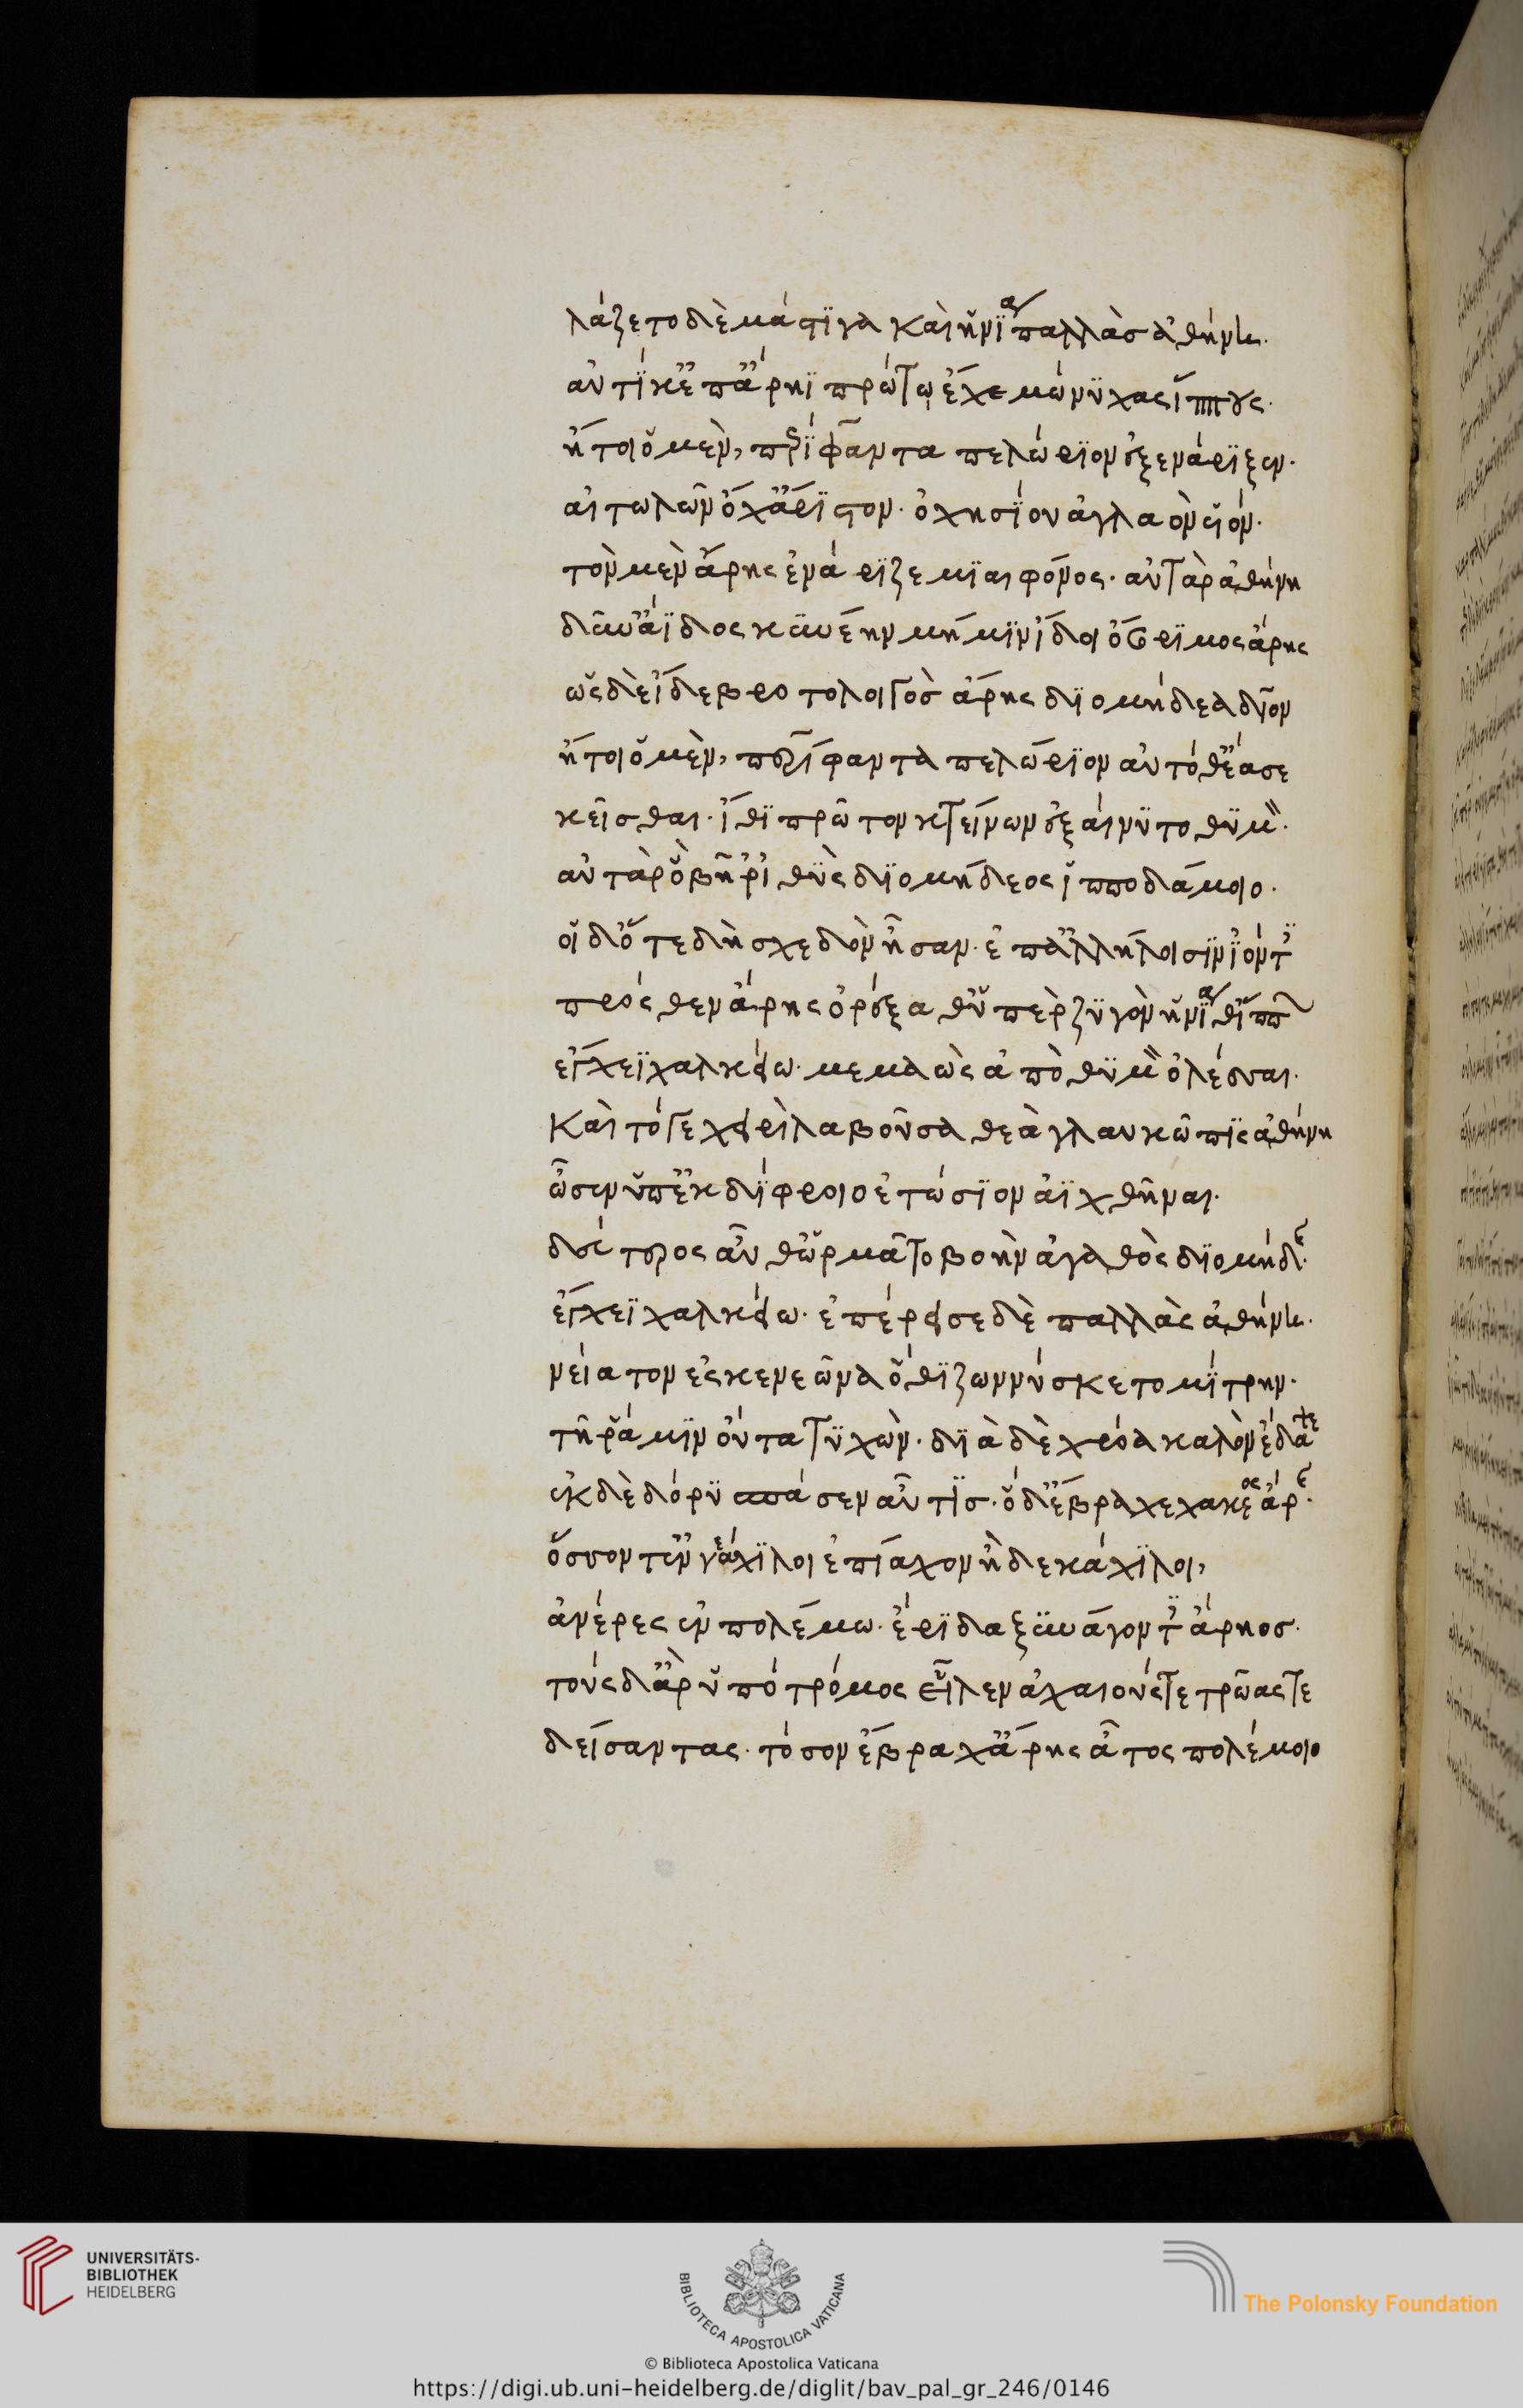 λάζετο δὲ μάστϊγα καὶ ἡνΐα παλλὰσ ἀθήνη.
αὐτίκ' ἐπ' ἄρηϊ πρώτω ἔχε μώνϋχας ἵππους.
ἤτοι ὁ μὲν, περΐφαντα πελώρϊον ἐξενάρϊξεν.
αἰτωλῶν ὄχ' ἄρϊστον. ὀχησΐου ἀγλαὸν υἱόν.
τὸν μὲν ἄρης ἐνάρϊζε μϊαιφόνος. αὐτὰρ ἀθήνη
δῦν' ἄϊδος κυνέην μή μϊν ἴδοι ὄβρϊμος ἄρης
ὡς δὲ ἴδε βροτολοιγὸσ ἄρης δϊομήδεα δῖον
ἤτοι ὁ μὲν, περίφαντα πελώρϊον αὐτόθ' ἔασε
κεῖσθαι. ὅθϊ πρῶτον κτείνων ἐξαίνϋτο θϋμόν.
αὐτὰρ ὁ βῆ ῥ' ἰθῢς δϊομήδεος ἱπποδάμοιο.
οἱ δ' ὅτε δὴ σχεδὸν ἦσαν. ἐπ' ἀλλήλοισϊν ϊόντες
πρόσθεν ἄρης ὀρέξαθ' ὑπὲρ ζϋγὸν ἡνΐα θ' ἵππων
ἔγχεϊ χαλκείω. μεμαὼς ἀπὸ θϋμὸν ὀλέσθαι.
Καὶ τόγε χειρὶ λαβοῦσα θεὰ γλαυκῶπϊς ἀθήνη
ὦσεν ὑπ' ἐκ δΐφροιο ἐτώσϊον ἀϊχθῆναι.
δεύτερος αὖθ' ὡρμᾶτο βοὴν ἀγαθὸς δϊομήδης.
ἔγχεϊ χαλκείω. ἐπέρεισε δὲ παλλὰς ἀθήνη.
νείατον ἐς κενεῶνα ὅθϊ ζωννύσκετο μΐτρην.
τῆ ῥά μϊν οὖτα τϋχὼν. δϊὰ δὲ χρόα καλὸν ἔδαψε
ἐκ δὲ δόρϋ σπάσεν αὖτϊσ. ὁ δ' ἔβραχε χάλκεος ἄρης.
ὅσσον τ' ἐννεάχϊλοι ἐπίαχον ἢ δεκάχϊλοι,
ἀνέρες ἐν πολέμω. ἔρϊδα ξϋνάγοντες ἄρηοσ.
τοὺς δ' ἄρ' ὑπὸ τρόμος εἷλεν ἀχαιούς τε τρῶας τε
δείσαντας. τόσον ἔβραχ' ἄρης ἆτος πολέμοιο
UNIVERSITÄTS-
BIBLIOTHEK
HEIDELBERG
BIBLIOTECA APOSTOLICA VATICANA
The Polonsky Foundation
© Biblioteca Apostolica Vaticana
https://digi.ub.uni-heidelberg.de/diglit/bav_pal_gr_246/0146